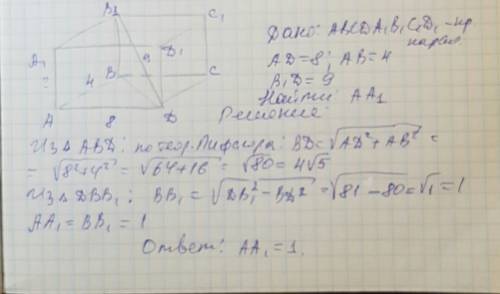 B₁
C₁
A₁
9
D₁
4
B
C
A
8
D
Дано: ABCDA₁B₁C₁D₁ - пр
паралл.
AD=8; AB=4
B₁D=9
Найти: AA₁
Решение:
Из △ ABD: по теор. Пифагора: BD=√AD²+AB² =
= √8²+4² = √64+16 = √80 = 4√5
Из △ DBB₁: BB₁ = √DB₁² - BD² = √81-80 = √1 = 1
AA₁ = BB₁ = 1
Ответ: AA₁ = 1.